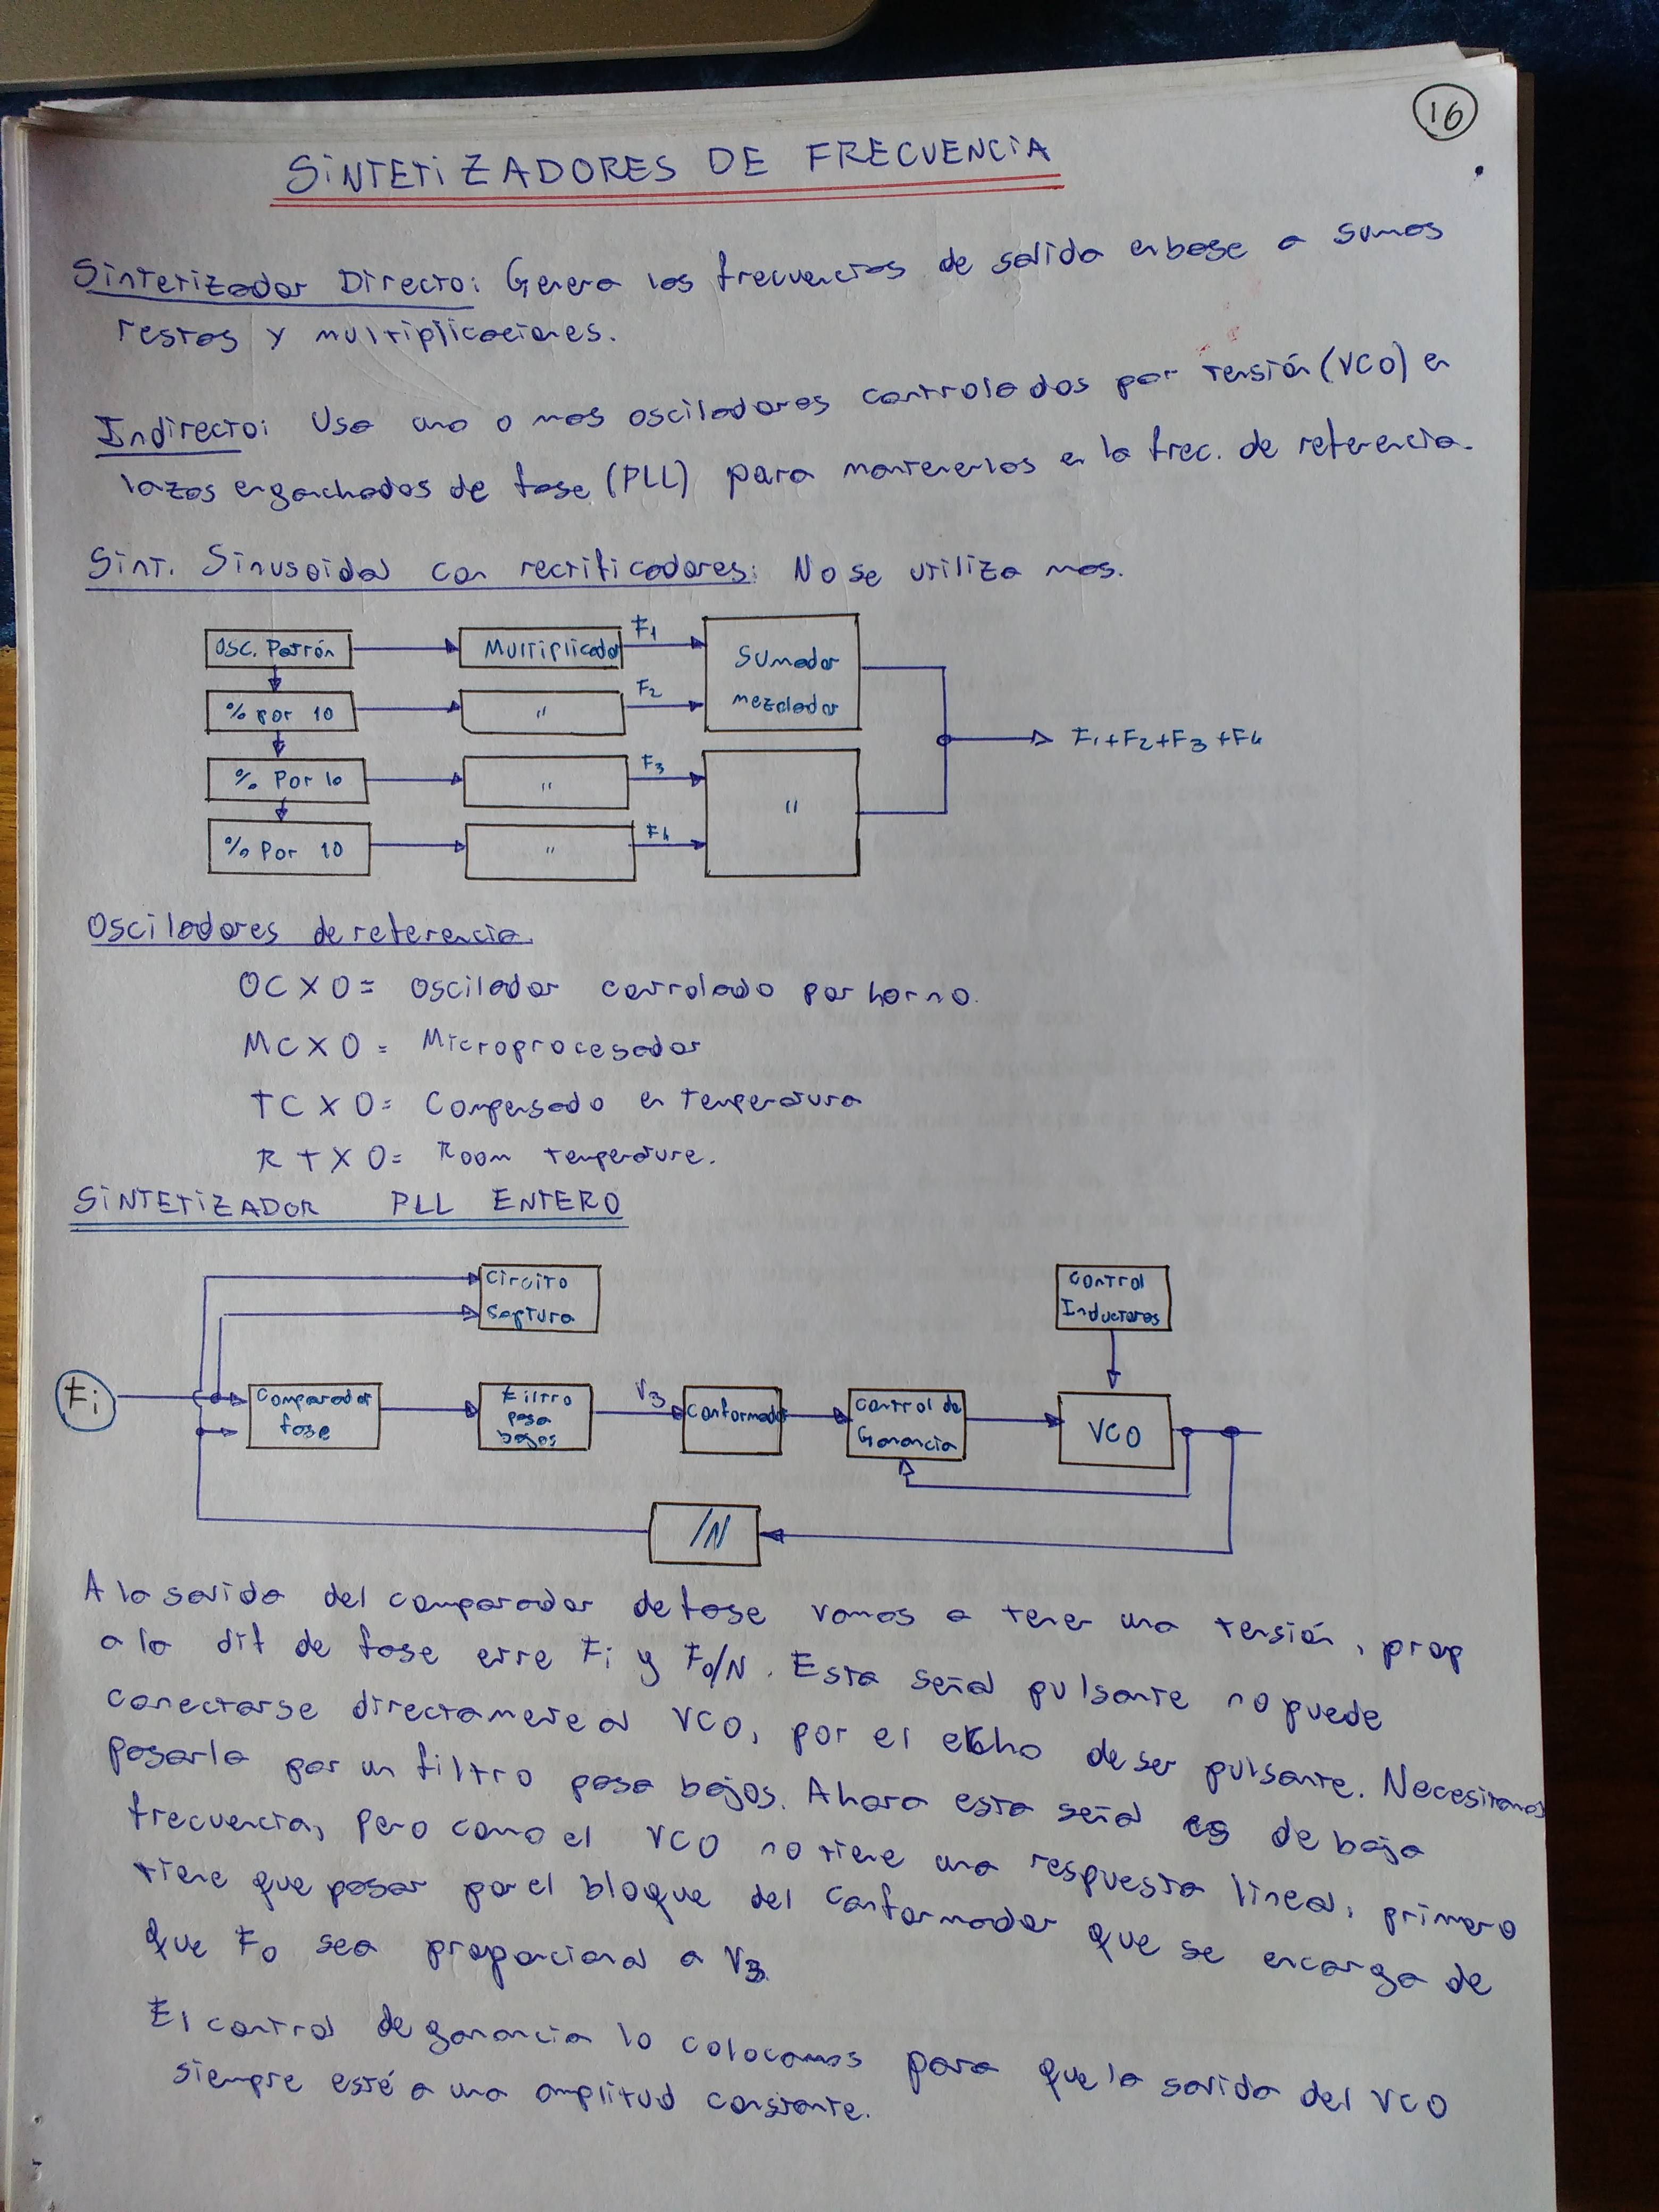 16
SINTETIZADORES DE FRECUENCIA
Sintetizador Directo: Genera las frecuencias de salida enbase a sumas
restas y multiplicaciones.
Indirecto: Usa uno o mas osciladores controlados por tensión (VCO) en
lazos enganchados de fase (PLL) para mantenerlos en la frec. de referencia.
Sint. Sinusoidal con rectificadores: No se utiliza mas.
OSC. Patrón
Multiplicador
F1
Sumador
mezclador
% por 10
"
F2
% Por 10
"
F3
"
F1+F2+F3+F4
% Por 10
"
F4
Osciladores de referencia.
OCXO= Oscilador controlado por horno.
MCXO= Microprocesador
TCXO= Compensado en temperatura
RTXO= Room temperature.
SINTETIZADOR PLL ENTERO
Circito
Captura
Control
Inductores
Fi
Comparador
fase
Filtro
pasa
bajos
V3
Conformador
Control de
Ganancia
VCO
/N
A la salida del comparador de fase vamos a tener una tensión, prop
a la dif de fase entre Fi y Fo/N. Esta señal pulsante no puede
conectarse directamente al VCO, por el echo de ser pulsante. Necesitamos
pasarla por un filtro pasa bajos. Ahora esta señal es de baja
frecuencia, pero como el VCO no tiene una respuesta lineal, primero
tiene que pasar por el bloque del conformador que se encarga de
que Fo sea proporcional a V3
El control de ganancia lo colocamos para que la salida del VCO
siempre esté a una amplitud constante.